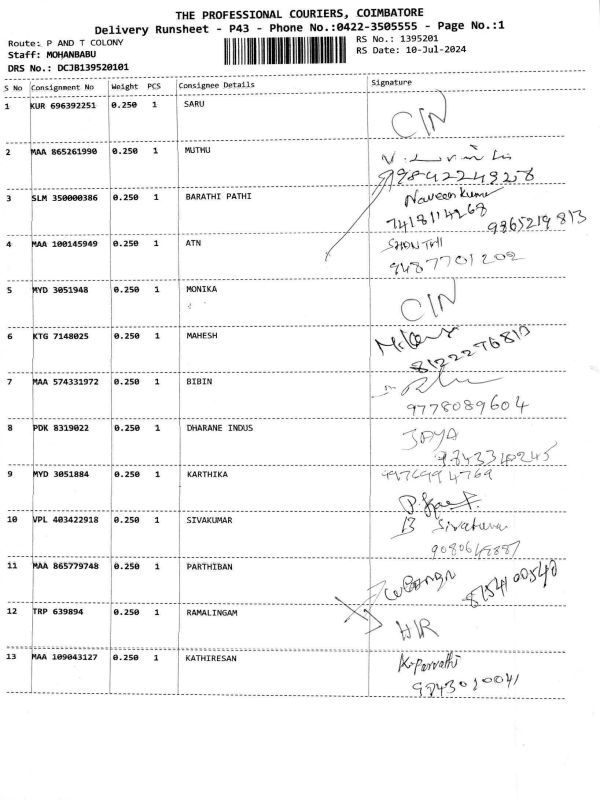 THE PROFESSIONAL COURIERS, COIMBATORE
Delivery Runsheet - P43 - Phone No.:0422-3505555 - Page No.:1
Route: P AND T COLONY
RS No.: 1395201
Staff: MOHANBABU
RS Date: 10-Jul-2024
DRS No.: DCJB139520101
S No Consignment No Weight PCS Consignee Details Signature
1 KUR 696392251 0.250 1 SARU
C/N
2 MAA 865261990 0.250 1 MUTHU
9842244828
3 SLM 350000386 0.250 1 BARATHI PATHI Naveen Kumar
7418114268 9865219813
4 MAA 100145949 0.250 1 ATN SHONTHI
9487701202
5 MYD 3051948 0.250 1 MONIKA
C/N
6 KTG 7148025 0.250 1 MAHESH
8122276813
7 MAA 574331972 0.250 1 BIBIN
9778089604
8 PDK 8319022 0.250 1 DHARANE INDUS JAYA
9843340245
9 MYD 3051884 0.250 1 KARTHIKA 9976994769
10 VPL 403422918 0.250 1 SIVAKUMAR 13
9080648887
11 MAA 865779748 0.250 1 PARTHIBAN
8754100540
12 TRP 639894 0.250 1 RAMALINGAM
H/R
13 MAA 109043127 0.250 1 KATHIRESAN K. Parvathi
9243010041